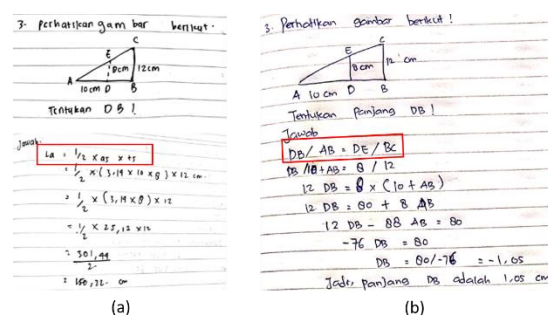 3. Perhatikan gambar berikut.
C
E
8cm
12cm
A
10cm D
B
Tentukan DB!
Jawab:
La = 1/2 x as x ts
= 1/2 x (3,14 x 10 x 8) x 12 cm
= 1/2 x (3,14 x 8) x 12
= 1/2 x 25,12 x 12
= 301,44
2
= 150,72 cm
(a)
3. Perhatikan gambar berikut!
C
E
8cm
12 cm
A 10 cm D B
Tentukan Panjang DB!
Jawab
DB/AB = DE/BC
DB/10+AB = 8/12
12 DB = 8 x (10 + AB)
12 DB = 80 + 8 AB
12 DB - 88 AB = 80
-76 DB = 80
DB = 80/-76 = -1,05
Jadi, panjang DB adalah 1,05 cm
(b)